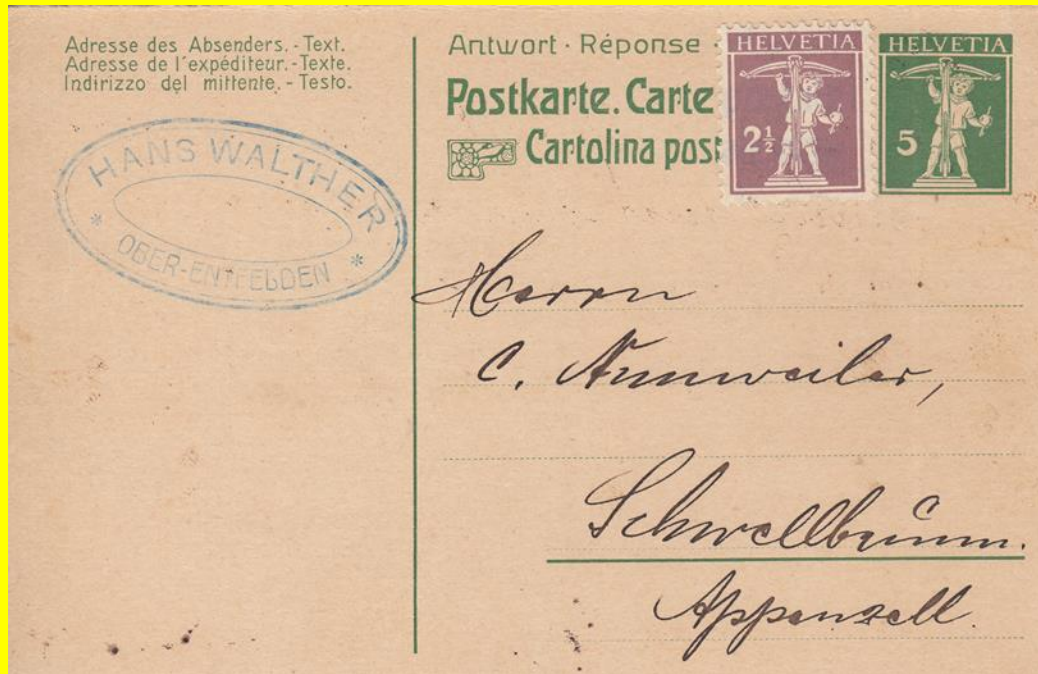 Adresse des Absenders.-Text.
Adresse de l'expéditeur.-Texte.
Indirizzo del mittente.-Testo.
HANS WALTHER
* OBER-ENTFELDEN *
Antwort · Réponse ·
Postkarte. Carte
Cartolina post
HELVETIA
2½
HELVETIA
5
Herrn
C.
Schwellbrunn.
Appenzell.